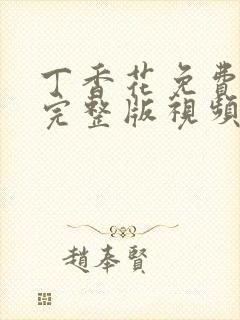 丁香花免費
完整版視頻
趙奉賢